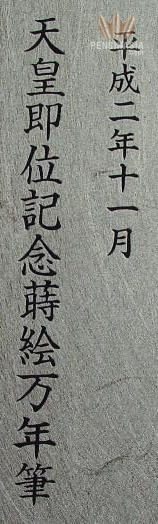 平成二年十一月
天皇即位記念蒔絵万年筆